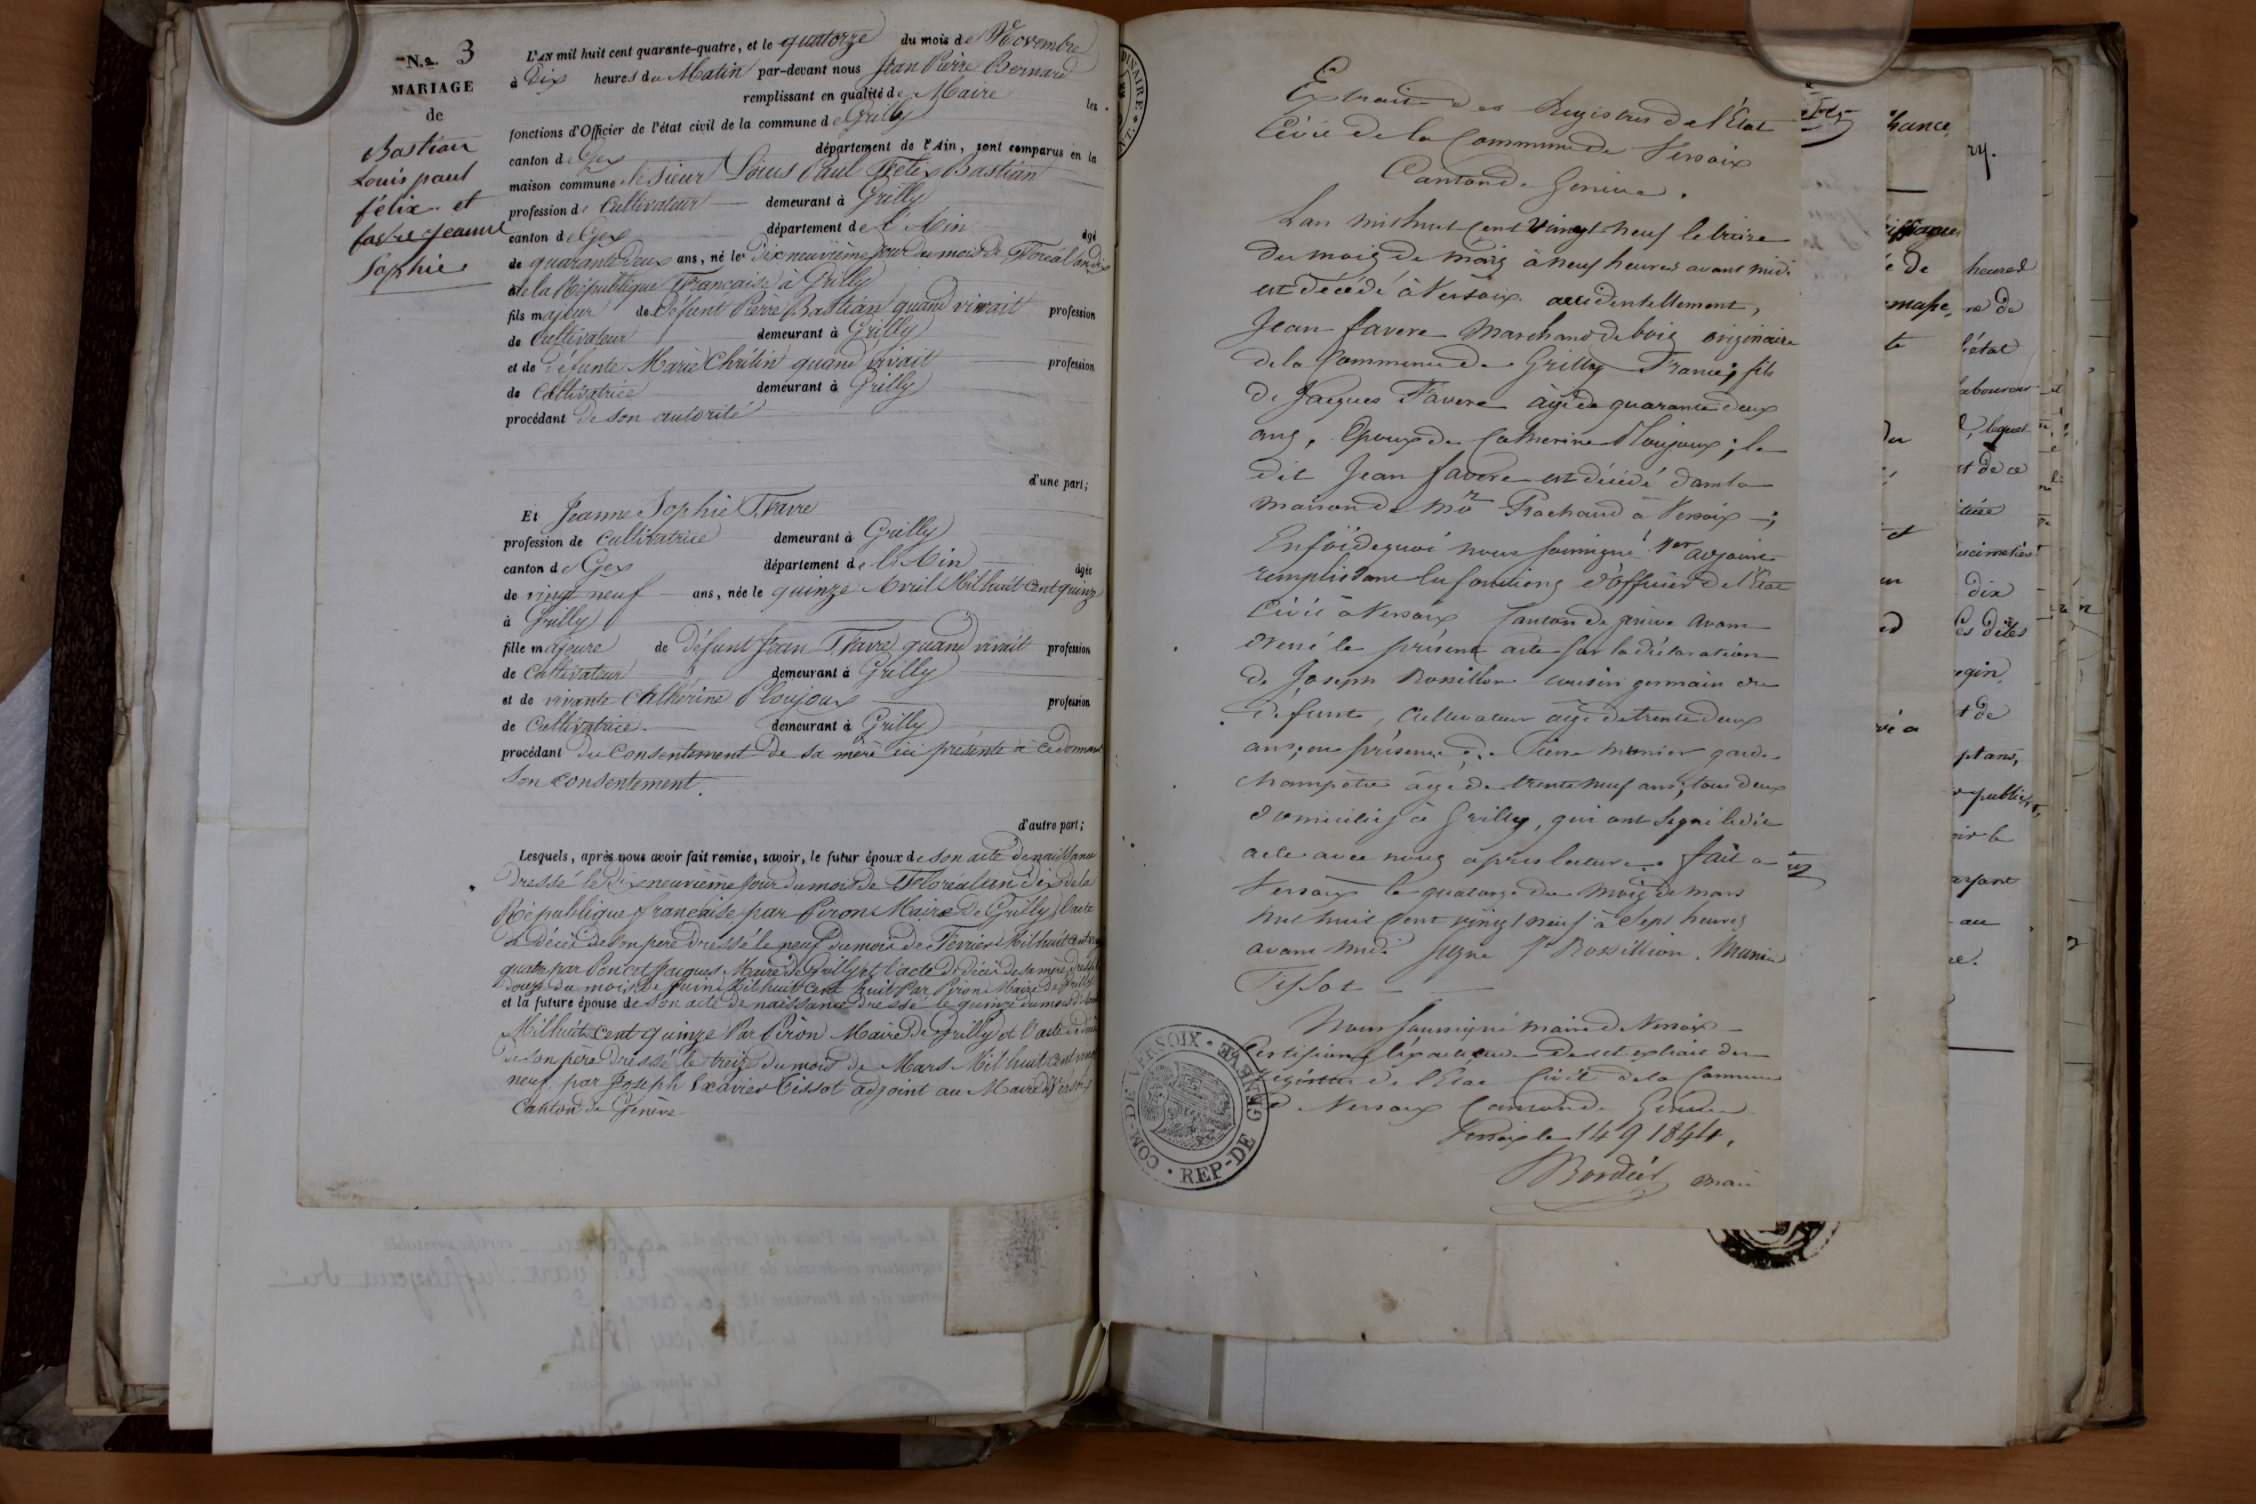 N.º 3
MARIAGE
de
Bastian
Louis paul
félix et
favre jeanne
Sophie
L'AN mil huit cent quarante-quatre, et le quatorze du mois de Novembre
à Dix heures du Matin par-devant nous Jean Pierre Bernard
remplissant en qualité de Maire les
fonctions d'Officier de l'état civil de la commune de Grilly
canton de Gex département de l'Ain, sont comparus en la
maison commune le Sieur Louis Paul Felix Bastian
profession de Cultivateur demeurant à Grilly
canton de Gex département de l'Ain âgé
de quarante Deux ans, né le Dix neuvième jour du mois de Floréal an dix
de la République Française à Grilly
fils majeur de Défunt Pierre Bastian quand vivait profession
de Cultivateur demeurant à Grilly
et de défunte Marie Chrétin quand vivait profession
de Cultivatrice demeurant à Grilly
procédant de son autorité
d'une part;
Et Jeanne Sophie Favre
profession de Cultivatrice demeurant à Grilly
canton de Gex département de l'Ain âgée
de vingt neuf ans, née le quinze Avril Mil huit Cent quinze
à Grilly
fille majeure de Défunt Jean Favre quand vivait profession
de Cultivateur demeurant à Grilly
et de vivante Cathérine Ploujoux profession
de Cultivatrice demeurant à Grilly
procédant du Consentement de sa mère ici présente à ce donnant
Son consentement.
d'autre part;
Lesquels, après nous avoir fait remise, savoir, le futur époux de son acte de naissance
Dressé le Dix neuvième jour du mois de Floréal an Dix de la
République française par Piron Maire de Grilly, l'acte
de Décès de son père Dressé le neuf du mois de Fevrier Mil huit Cent
quatre par Poncet Jacques Maire de Grilly et l'acte de décès de sa mère dressé
Douze du mois de Juin Mil huit Cent huit Par Piron Maire de Grilly
et la future épouse de son acte de naissance dressé le quinze du mois d'Avril
Mil huit Cent quinze Par Piron Maire de Grilly et l'acte de décès
de son père Dressé le treize du mois de Mars Mil huit Cent vingt
neuf par Joseph Xavier Tissot adjoint au Maire de Versoix
Canton de Genève
Extrait des Registres de l'Etat
Civil de la Commune de Versoix
Canton de Genève.
Lan mil huit Cent Vingt neuf le treize
du mois de mars à neuf heures avant midi
est décédé à Versoix accidentellement,
Jean favere Marchand de bois originaire
de la Commune de Grilly France, fils
de Jacques Favere âgé de quarante deux
ans, Epoux de Catherine Ploujoux; le
dit Jean favere est décédé dans la
maison de Mr Frachaud à Versoix;
En foi de quoi nous soussigné 1er adjoint
remplissant les fonctions d'officier de l'Etat
Civil à Versoix Canton de genève avons
dressé le présent acte sur la déclaration
de Joseph Rossillion cousin germain du
defunt, Cultivateur âgé de trente deux
ans; en présence de Pierre Munier garde
champêtre âgé de trente neuf ans, tous deux
domiciliés à Grilly, qui ont signé le dit
acte avec nous après lecture. fait à
Versoix le quatorze du mois de mars
mil huit Cent vingt neuf à Sept heures
avant midi signé J. Rossillion. Munier
Tissot
Nous soussigné maire de Versoix
Certifions l'exactitude de cet extrait des
registres de l'Etat Civil de la Commune
de Versoix Canton de Genève
Versoix le 14 9 1844.
Bordier maire
COM-DE VERSOIX
REP-DE GENEVE
heures
ne de
l'état
laboureur
lequel
et de ce
dix
les dites
et de
publics
voir le
ayant
au